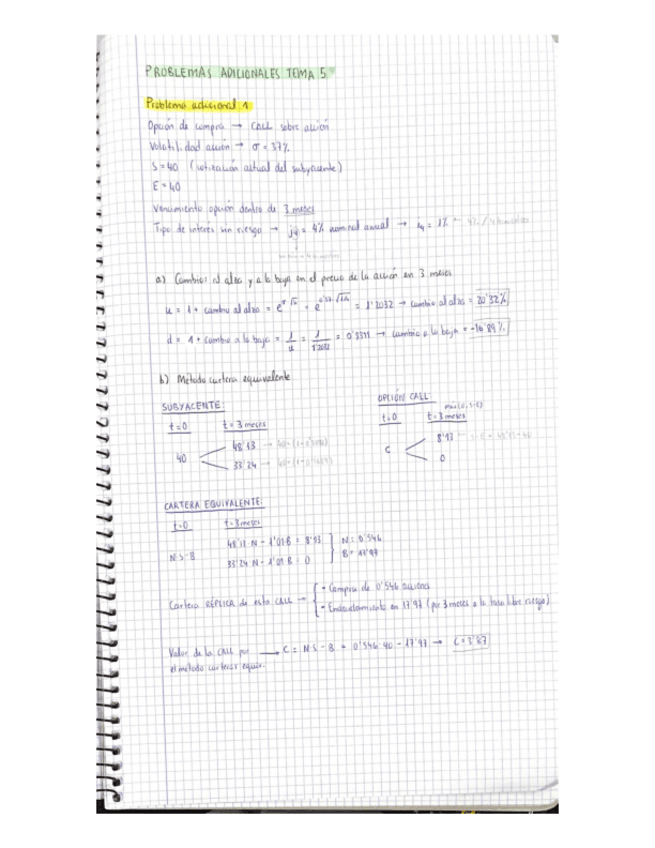 PROBLEMAS ADICIONALES TEMA 5
Problema adicional 1
Opción de compra → CALL sobre acción
Volatilidad acción → σ = 37%
S = 40 (cotización actual del subyacente)
E = 40
Vencimiento opción dentro de 3 meses
Tipo de interés sin riesgo → j4 = 4% nominal anual → i4 = 1%
a) Cambios al alza y a la baja en el precio de la acción en 3 meses
u = 1 + cambio al alza = = 1'2032 → cambio al alza = 20'32%
d = 1 + cambio a la baja = 1/u = 1/1'2032 = 0'8311 → cambio a la baja = -16'89%
b) Método cartera equivalente
SUBYACENTE:
t=0 t=3 meses
40
48'13
33'24
OPCIÓN CALL:
max(0, S-E)
t=0 t=3 meses
C
8'13
0
CARTERA EQUIVALENTE:
t=0 t=3 meses
N·S-B
48'13·N - 1'01·B = 8'13
33'24·N - 1'01·B = 0
N = 0'546
B = 17'97
Cartera RÉPLICA de esta CALL →
• Compra de 0'546 acciones
• Endeudamiento en 17'97 (por 3 meses a la tasa libre riesgo)
Valor de la CALL por → C = N·S - B = 0'546·40 - 17'97 → C = 3'87
el método carteras equiv.